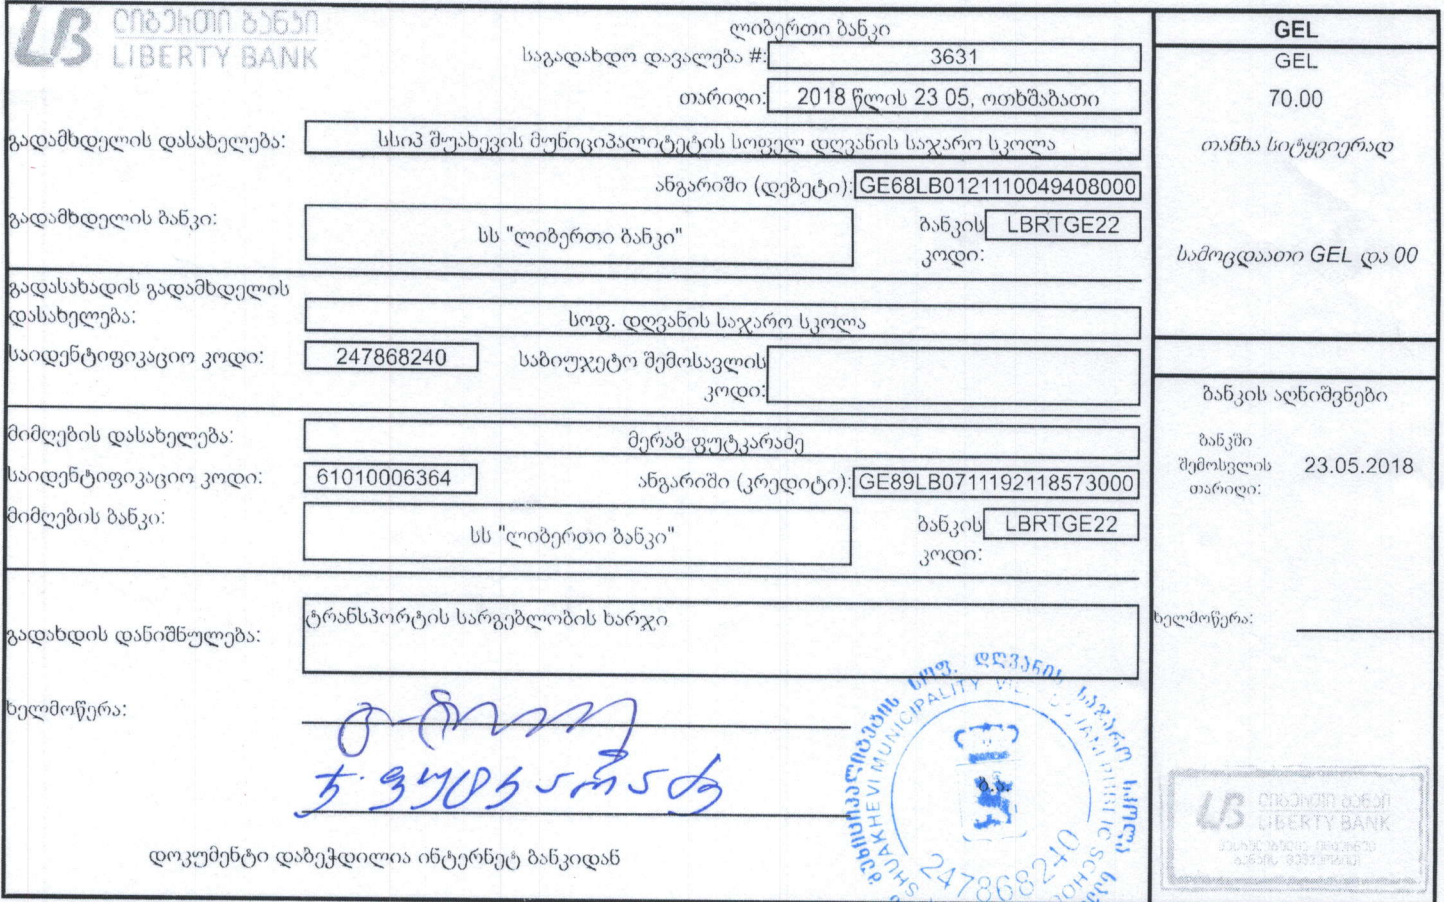 ლიბერთი ბანკი
LIBERTY BANK
ლიბერთი ბანკი
საგადახდო დავალება #: 3631
თარიღი: 2018 წლის 23 05, ოთხშაბათი
გადამხდელის დასახელება: სსიპ შუახევის მუნიციპალიტეტის სოფელ დღვანის საჯარო სკოლა
ანგარიში (დებეტი): GE68LB0121110049408000
გადამხდელის ბანკი: სს "ლიბერთი ბანკი" ბანკის კოდი: LBRTGE22
გადასახადის გადამხდელის
დასახელება: სოფ. დღვანის საჯარო სკოლა
საიდენტიფიკაციო კოდი: 247868240 საბიუჯეტო შემოსავლის
კოდი:
მიმღების დასახელება: მერაბ ფუტკარაძე
საიდენტიფიკაციო კოდი: 61010006364 ანგარიში (კრედიტი): GE89LB0711192118573000
მიმღების ბანკი: სს "ლიბერთი ბანკი" ბანკის კოდი: LBRTGE22
გადახდის დანიშნულება: ტრანსპორტის სარგებლობის ხარჯი
ხელმოწერა:
ფუტკარაძე
დოკუმენტი დაბეჭდილია ინტერნეტ ბანკიდან
GEL
GEL
70.00
თანხა სიტყვიერად
სამოცდაათი GEL და 00
ბანკის აღნიშვნები
ბანკში
შემოსვლის 23.05.2018
თარიღი:
ხელმოწერა:
მუნიციპალიტეტის სოფ. დღვანის საჯარო სკოლა
SHUAKHEVI MUNICIPALITY PUBLIC SCHOOL
ბ.ა.
247868240
ლიბერთი ბანკი
LIBERTY BANK